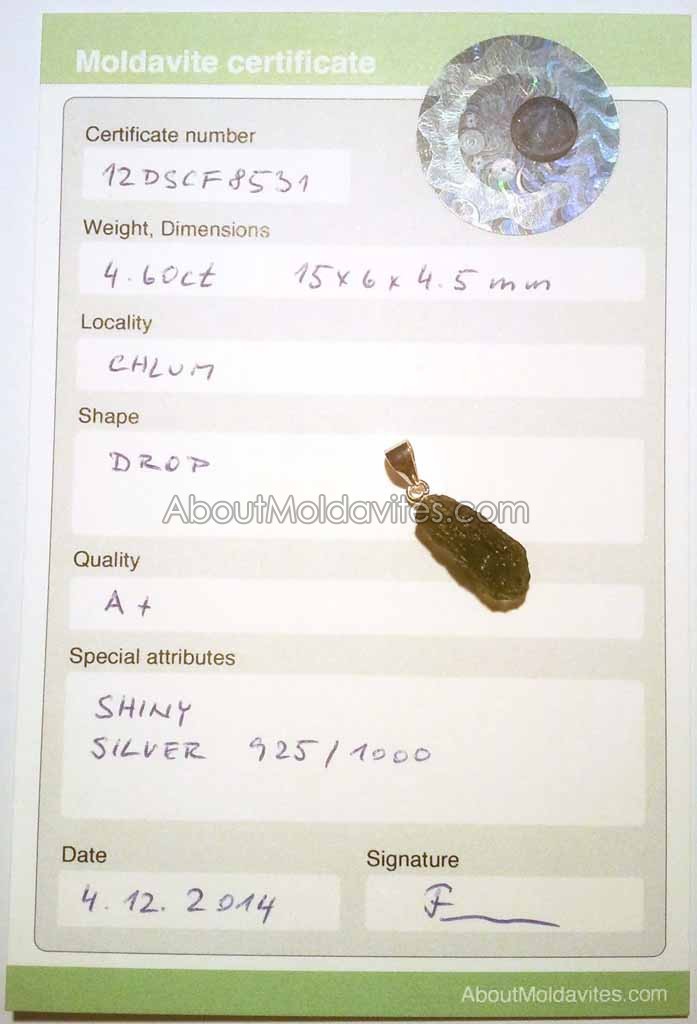 Moldavite certificate
Certificate number
12DSCF8531
Weight, Dimensions
4.60ct 15x6x4.5mm
Locality
CHLUM
Shape
DROP
AboutMoldavites.com
Quality
A+
Special attributes
SHINY
SILVER 925/1000
Date
Signature
4.12.2014
AboutMoldavites.com